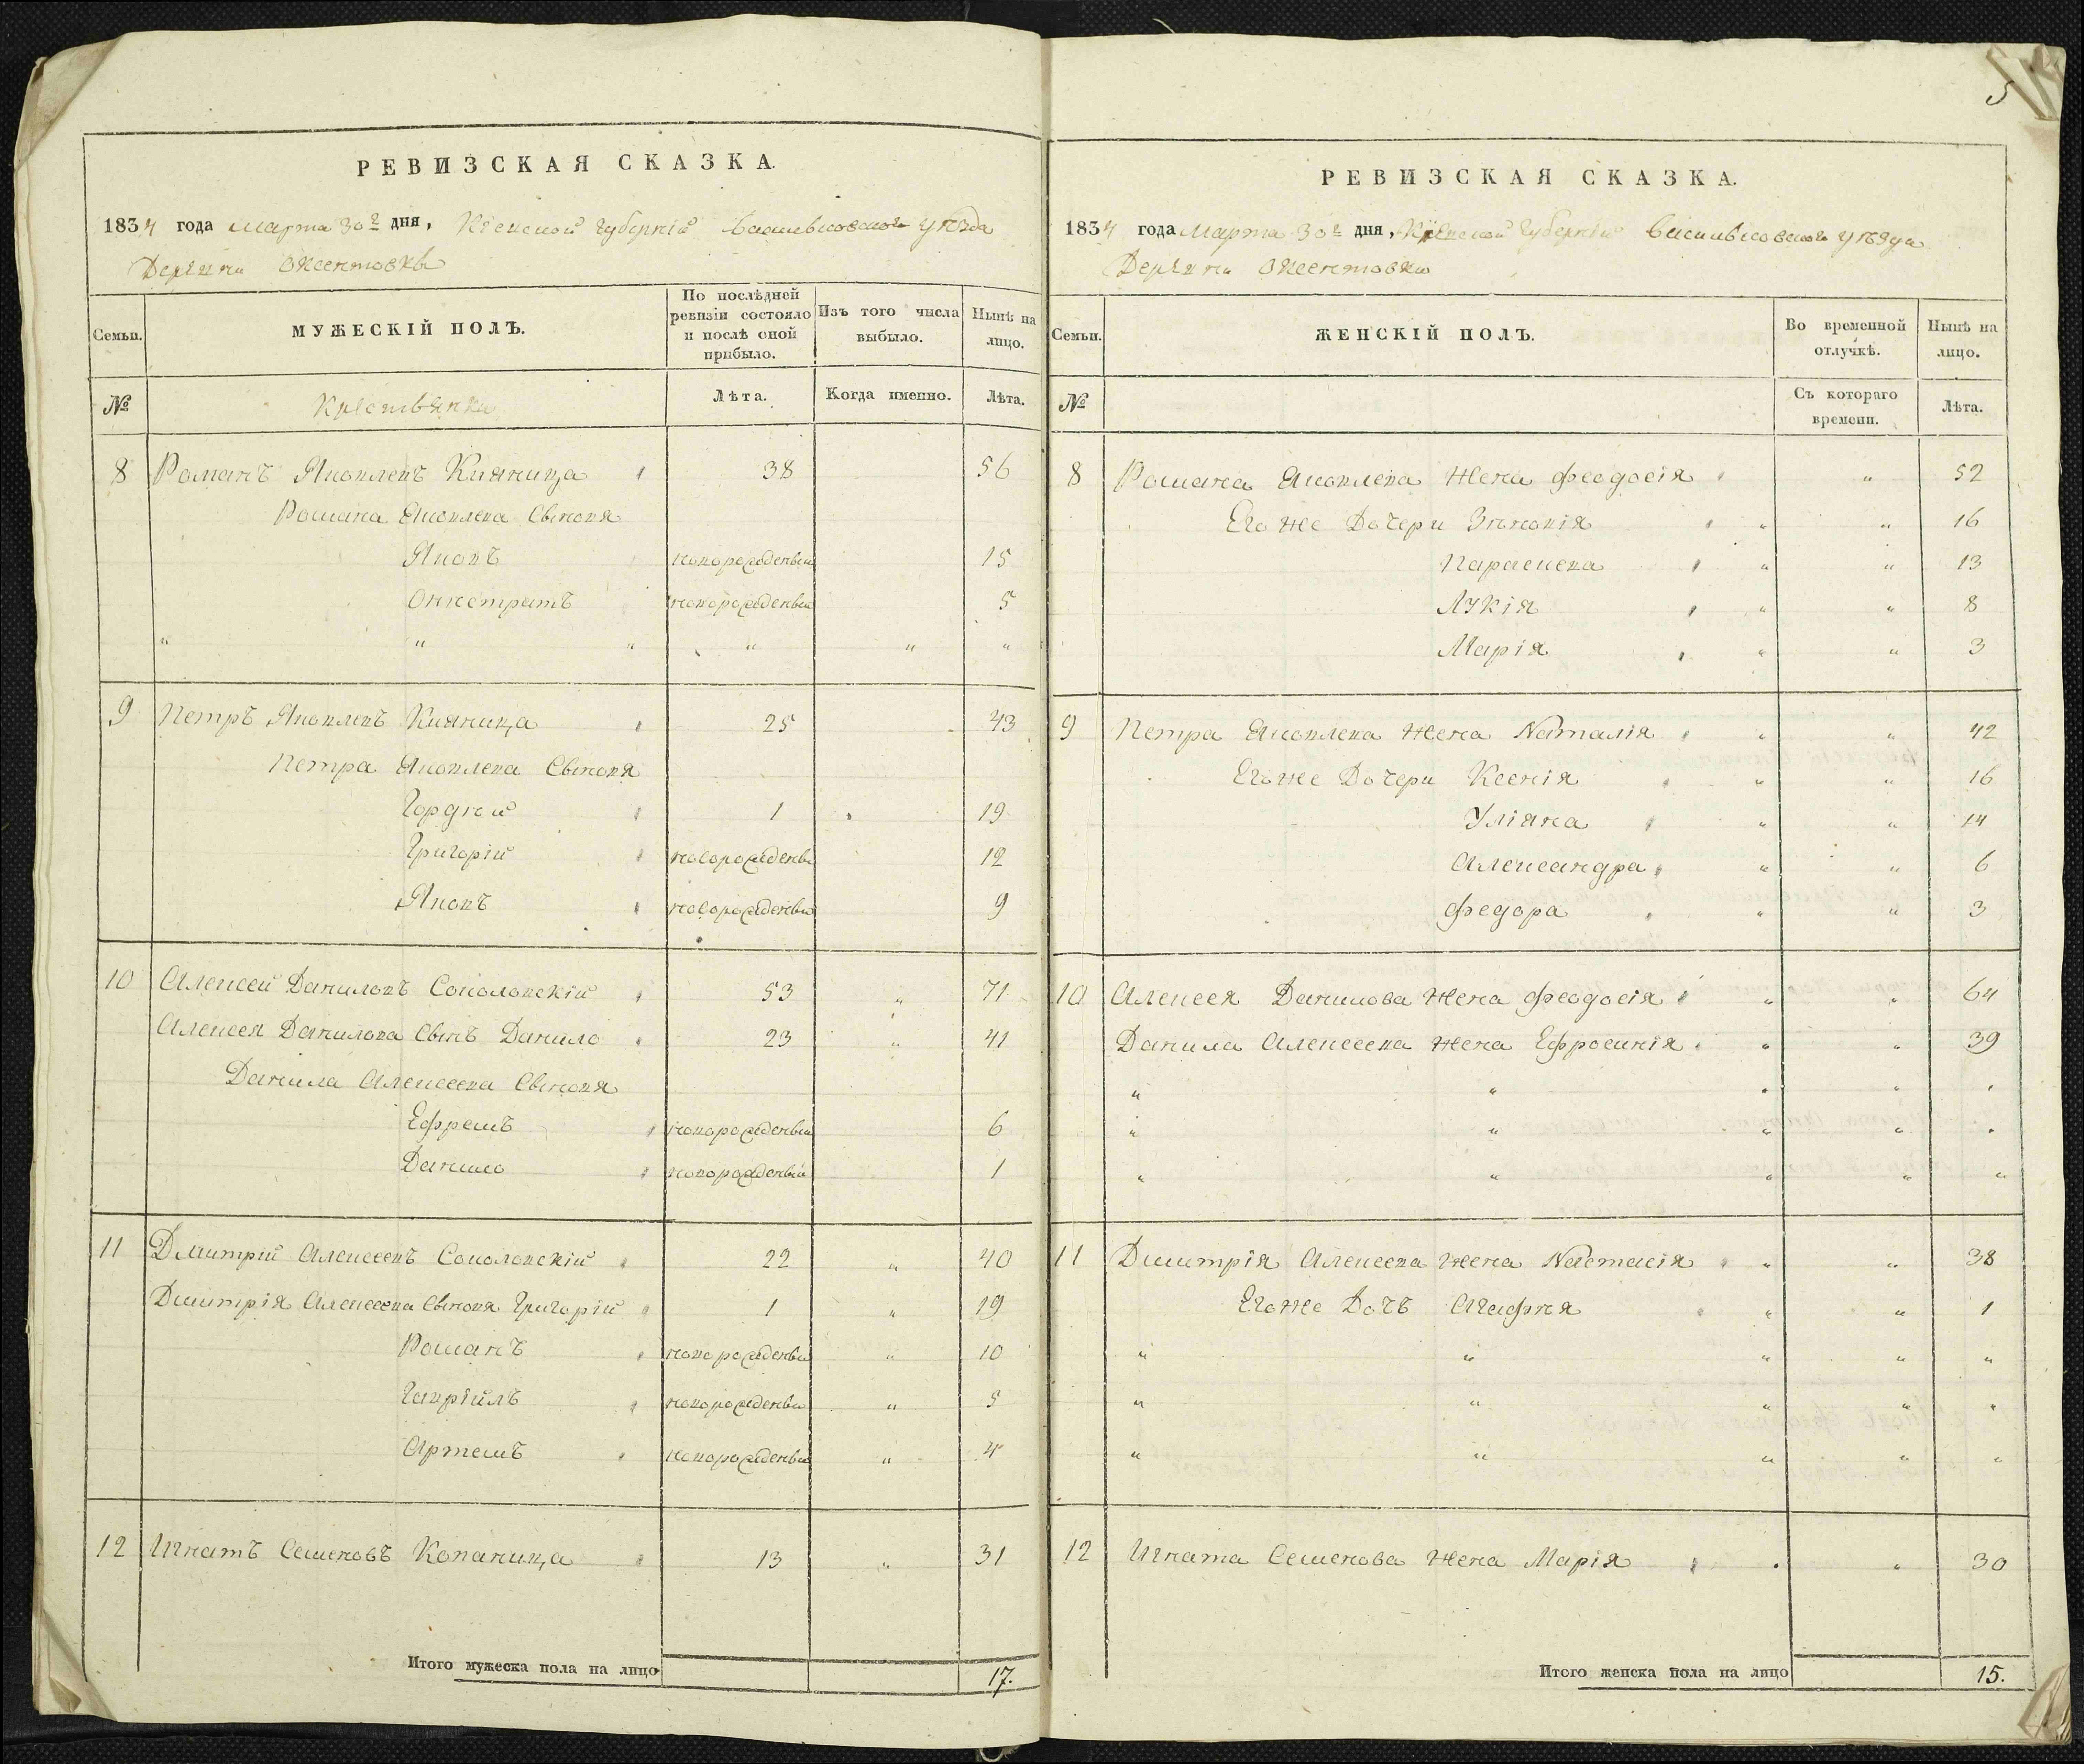 5
РЕВИЗСКАЯ СКАЗКА.
1834 года марта 30го дня, Кіевской губерніи Васильковскаго уѣзда
Деревни Оксентовки
Семьи. МУЖЕСКІЙ ПОЛЪ. По послѣдней ревизіи состояло и послѣ оной прибыло. Изъ того числа выбыло. Нынѣ на лицо.
№ Крестьянки Лѣта. Когда именно. Лѣта.
8 Романъ Яковлевъ Кияница 38 56
Романа Яковлева Сыновя
Яковъ новорожденный 15
новорожденный 5
" " " " " "
9 Петръ Яковлевъ Кияница 25 43
Петра Яковлева Сыновя
Гордѣй 1 19
Григорій новорожденный 12
Яковъ новорожденный 9
10 Алексей Даниловъ Соколовскій 53 " 71
Алексея Данилова Сынъ Данило 23 " 41
Данила Алексеева Сыновя
Ефремъ новорожденный 6
Данило новорожденный 1
11 Дмитрій Алексеевъ Соколовскій 22 " 40
Дмитрія Алексеева Сыновя Григорій 1 " 19
Романъ новорожденный " 10
Гавріилъ новорожденный " 5
Артемъ новорожденный " 4
12 Игнатъ Семеновъ Копаница 13 " 31
Итого мужеска пола на лицо 17.
РЕВИЗСКАЯ СКАЗКА.
1834 года Марта 30го дня, Кіевской губерніи Васильковскаго уѣзда
Деревни Оксентовки
Семьи. ЖЕНСКІЙ ПОЛЪ. Во временной отлучкѣ. Нынѣ на лицо.
№ Съ котораго времени. Лѣта.
8 Романа Яковлева жена Феодосія " 52
Его же Дочери Зѣновія " " 16
Параскева " " 13
Лукія " " 8
Марія " " 3
9 Петра Яковлева жена Наталія " " 42
Егоже Дочери Ксенія " " 16
Уліяна " " 14
Александра " " 6
Федора " " 3
10 Алексея Данилова жена Феодосія " " 64
Данила Алексеева жена Ефросинія " " 39
" " " " "
" " " " "
" " " " "
11 Дмитрія Алексеева жена Настасія " " 38
Егоже Дочь Агафія " " 1
" " " " "
" " " " "
" " " " "
12 Игната Семенова жена Марія " " 30
Итого женска пола на лицо 15.